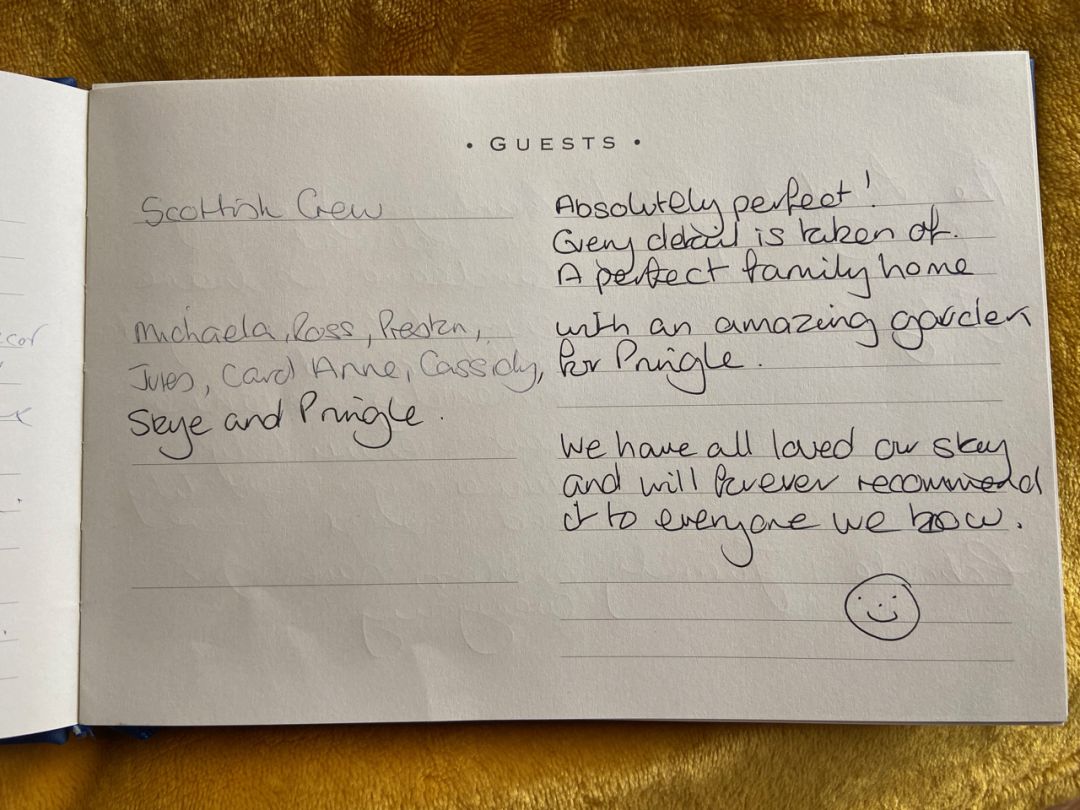 • GUESTS •
Scottish Crew
Michaela, Ross, Preston,
Jules, Carol Anne, Cassidy,
Skye and Pringle.
Absolutely perfect!
Every detail is taken of.
A perfect family home
with an amazing garden
for Pringle.
We have all loved our stay
and will forever recommend
it to everyone we know.